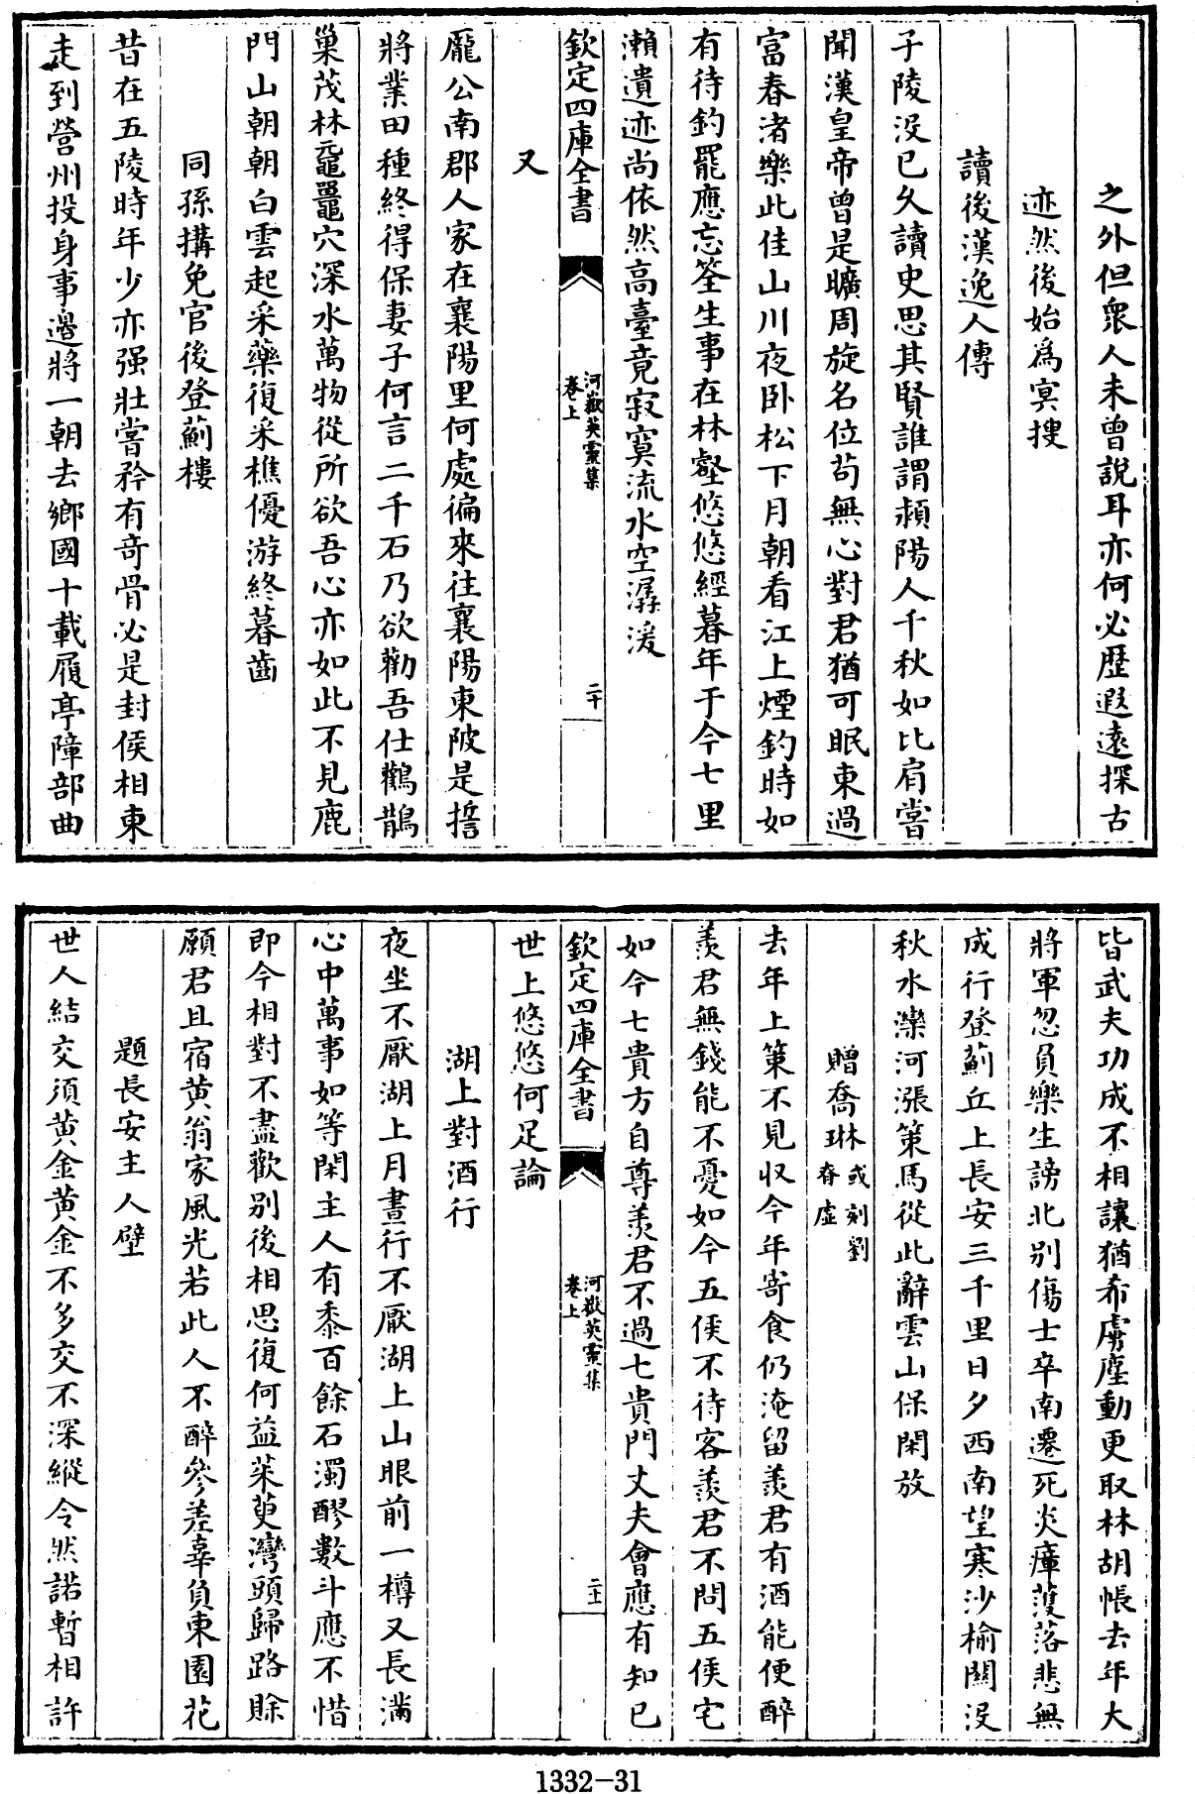 之外但衆人未曾說耳亦何必歴遐遠探古
迹然後始爲冥搜
讀後漢逸人傳
子陵没已久讀史思其賢誰謂潁陽人千秋如比肩嘗
聞漢皇帝曾是曠周旋名位苟無心對君猶可眠東過
富春渚樂此佳山川夜卧松下月朝看江上煙釣時如
有待釣罷應忘筌生事在林壑悠悠經暮年于今七里
瀨遺迹尚依然高臺竟寂寞流水空潺湲
欽定四庫全書
河嶽英靈集
卷上
二十
又
龐公南郡人家在襄陽里何處徧來往襄陽東陂是誓
將業田種終得保妻子何言二千石乃欲勸吾仕鸛鵲
巢茂林黿鼉穴深水萬物從所欲吾心亦如此不見鹿
門山朝朝白雲起采藥復采樵優游終暮齒
同孫搆免官後登薊樓
昔在五陵時年少亦强壯嘗矜有奇骨必是封侯相東
走到營州投身事邊將一朝去鄉國十載履亭障部曲
皆武夫功成不相讓猶希虜塵動更取林胡帳去年大
將軍忽負樂生謗北别傷士卒南遷死炎瘴濩落悲無
成行登薊丘上長安三千里日夕西南望寒沙榆關没
秋水灤河漲策馬從此辭雲山保閑放
贈喬琳或刻劉
眘虛
去年上策不見収今年寄食仍淹留羨君有酒能便醉
羨君無錢能不憂如今五侯不待客羨君不問五侯宅
如今七貴方自尊羨君不過七貴門丈夫會應有知已
欽定四庫全書
河嶽英靈集
卷上
二十一
世上悠悠何足論
湖上對酒行
夜坐不厭湖上月晝行不厭湖上山眼前一樽又長滿
心中萬事如等閑主人有黍百餘石濁醪數斗應不惜
即今相對不盡歡别後相思復何益茱萸灣頭歸路賖
願君且宿黄翁家風光若此人不醉參差辜負東園花
題長安主人壁
世人結交須黄金黄金不多交不深縱令然諾暫相許
1332-31